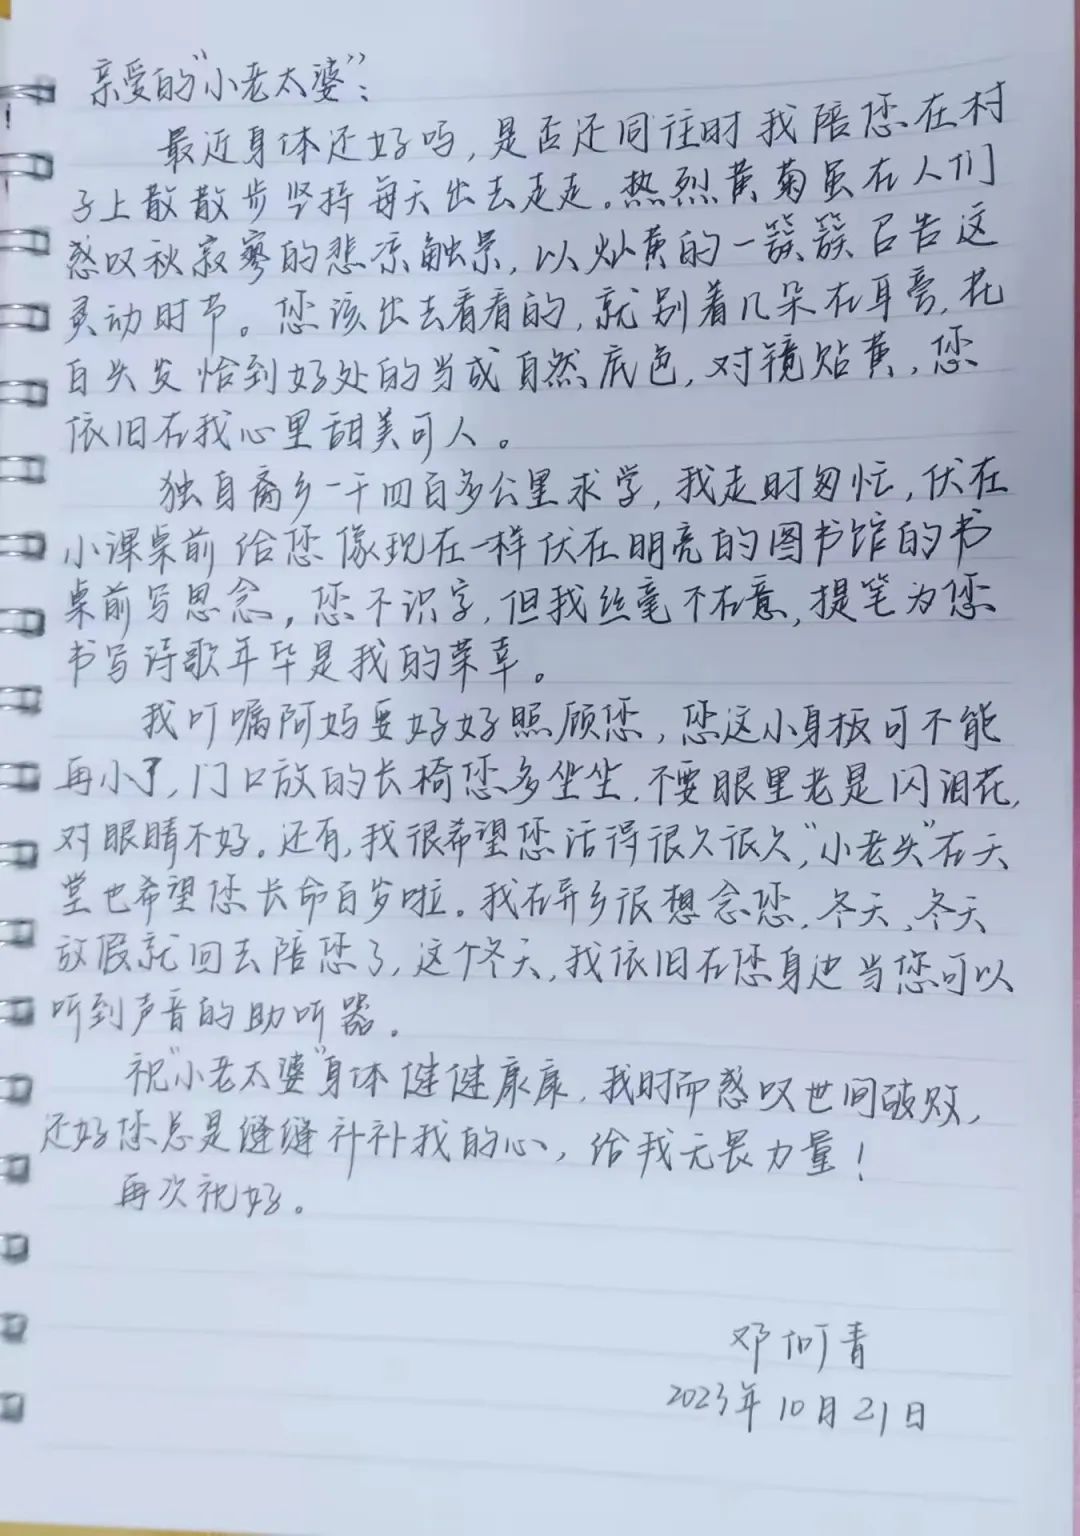 亲爱的“小老太婆”：
最近身体还好吗，是否还同往时我陪您在村
子上散散步坚持每天出去走走。热烈黄菊虽在人们
感叹秋寂寥的悲凉触景，以灿黄的一簇簇召告这
灵动时节。您该出去看看的，就别着几朵在耳旁，花
白头发恰到好处的当成自然底色，对镜贴黄，您
依旧在我心里甜美可人。
独自离乡一千四百多公里求学，我走时匆忙，伏在
小课桌前给您像现在一样伏在明亮的图书馆的书
桌前写思念，您不识字，但我丝毫不在意，提笔为您
书写诗歌年华是我的荣幸。
我叮嘱阿妈要好好照顾您，您这小身板可不能
再小了，门口放的长椅您多坐坐，不要眼里老是闪泪花，
对眼睛不好。还有，我很希望您活得很久很久，“小老头”在天
堂也希望您长命百岁啦。我在异乡很想念您，冬天，冬天
放假就回去陪您了，这个冬天，我依旧在您身边当您可以
听到声音的助听器。
祝“小老太婆”身体健健康康，我时而感叹世间破败，
还好您总是缝缝补补我的心，给我无畏力量！
再次祝好。
邓何青
2023年10月21日